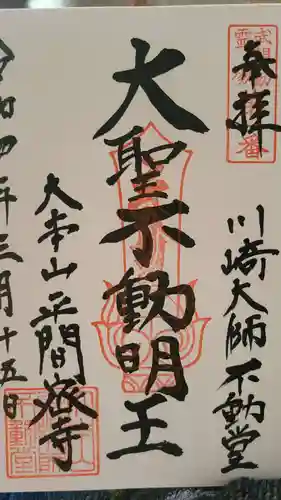 奉拝
川崎大師不動堂
大聖不動明王
大本山平間寺
令和四年三月十五日